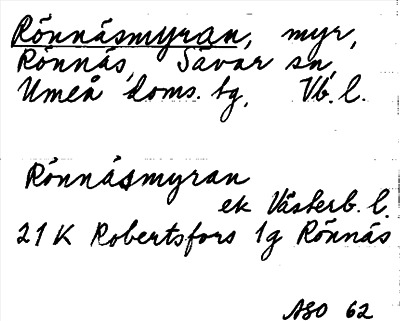 Rönnäsmyran, myr,
Rönnäs, Sävar sn,
Umeå doms. tg, Vb. l.
Rönnäsmyran
ek Västerb. l.
21 K Robertsfors 1g Rönnäs
ASO 62